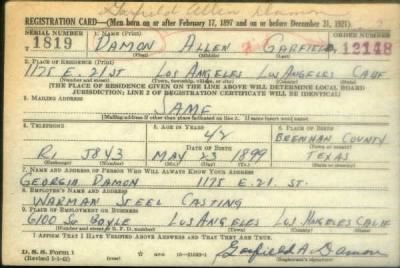 Garfield Allen Damon
REGISTRATION CARD—(Men born on or after February 17, 1897 and on or before December 31, 1921)
SERIAL NUMBER 1. NAME (Print) ORDER NUMBER
T 1819 DAMON ALLEN GARFIELD 12148
(First) (Middle) (Last)
2. PLACE OF RESIDENCE (Print)
1175 E. 21 ST LOS ANGELES LOS ANGELES CALIF
(Number and street) (Town, township, village, or city) (County) (State)
[THE PLACE OF RESIDENCE GIVEN ON THE LINE ABOVE WILL DETERMINE LOCAL BOARD
JURISDICTION; LINE 2 OF REGISTRATION CERTIFICATE WILL BE IDENTICAL]
3. MAILING ADDRESS
SAME
[Mailing address if other than place indicated on line 2. If same insert word same]
4. TELEPHONE 5. AGE IN YEARS 6. PLACE OF BIRTH
42 BRENHAN COUNTY
DATE OF BIRTH (Town or county)
RI 5843 MAY 23 1899 TEXAS
(Exchange) (Number) (Mo.) (Day) (Yr.) (State or country)
7. NAME AND ADDRESS OF PERSON WHO WILL ALWAYS KNOW YOUR ADDRESS
GEORGIA DAMON 1175 E. 21. ST.
8. EMPLOYER'S NAME AND ADDRESS
WARMAN STEEL CASTING
9. PLACE OF EMPLOYMENT OR BUSINESS
6100 SO BOYLE LOS ANGELES LOS ANGELES CALIF
(Number and street or R. F. D. number) (Town) (County) (State)
I AFFIRM THAT I HAVE VERIFIED ABOVE ANSWERS AND THAT THEY ARE TRUE.
D. S. S. Form 1
(Revised 1-1-42) (over) 16—21630-1 Garfield A. Damon
(Registrant's signature)